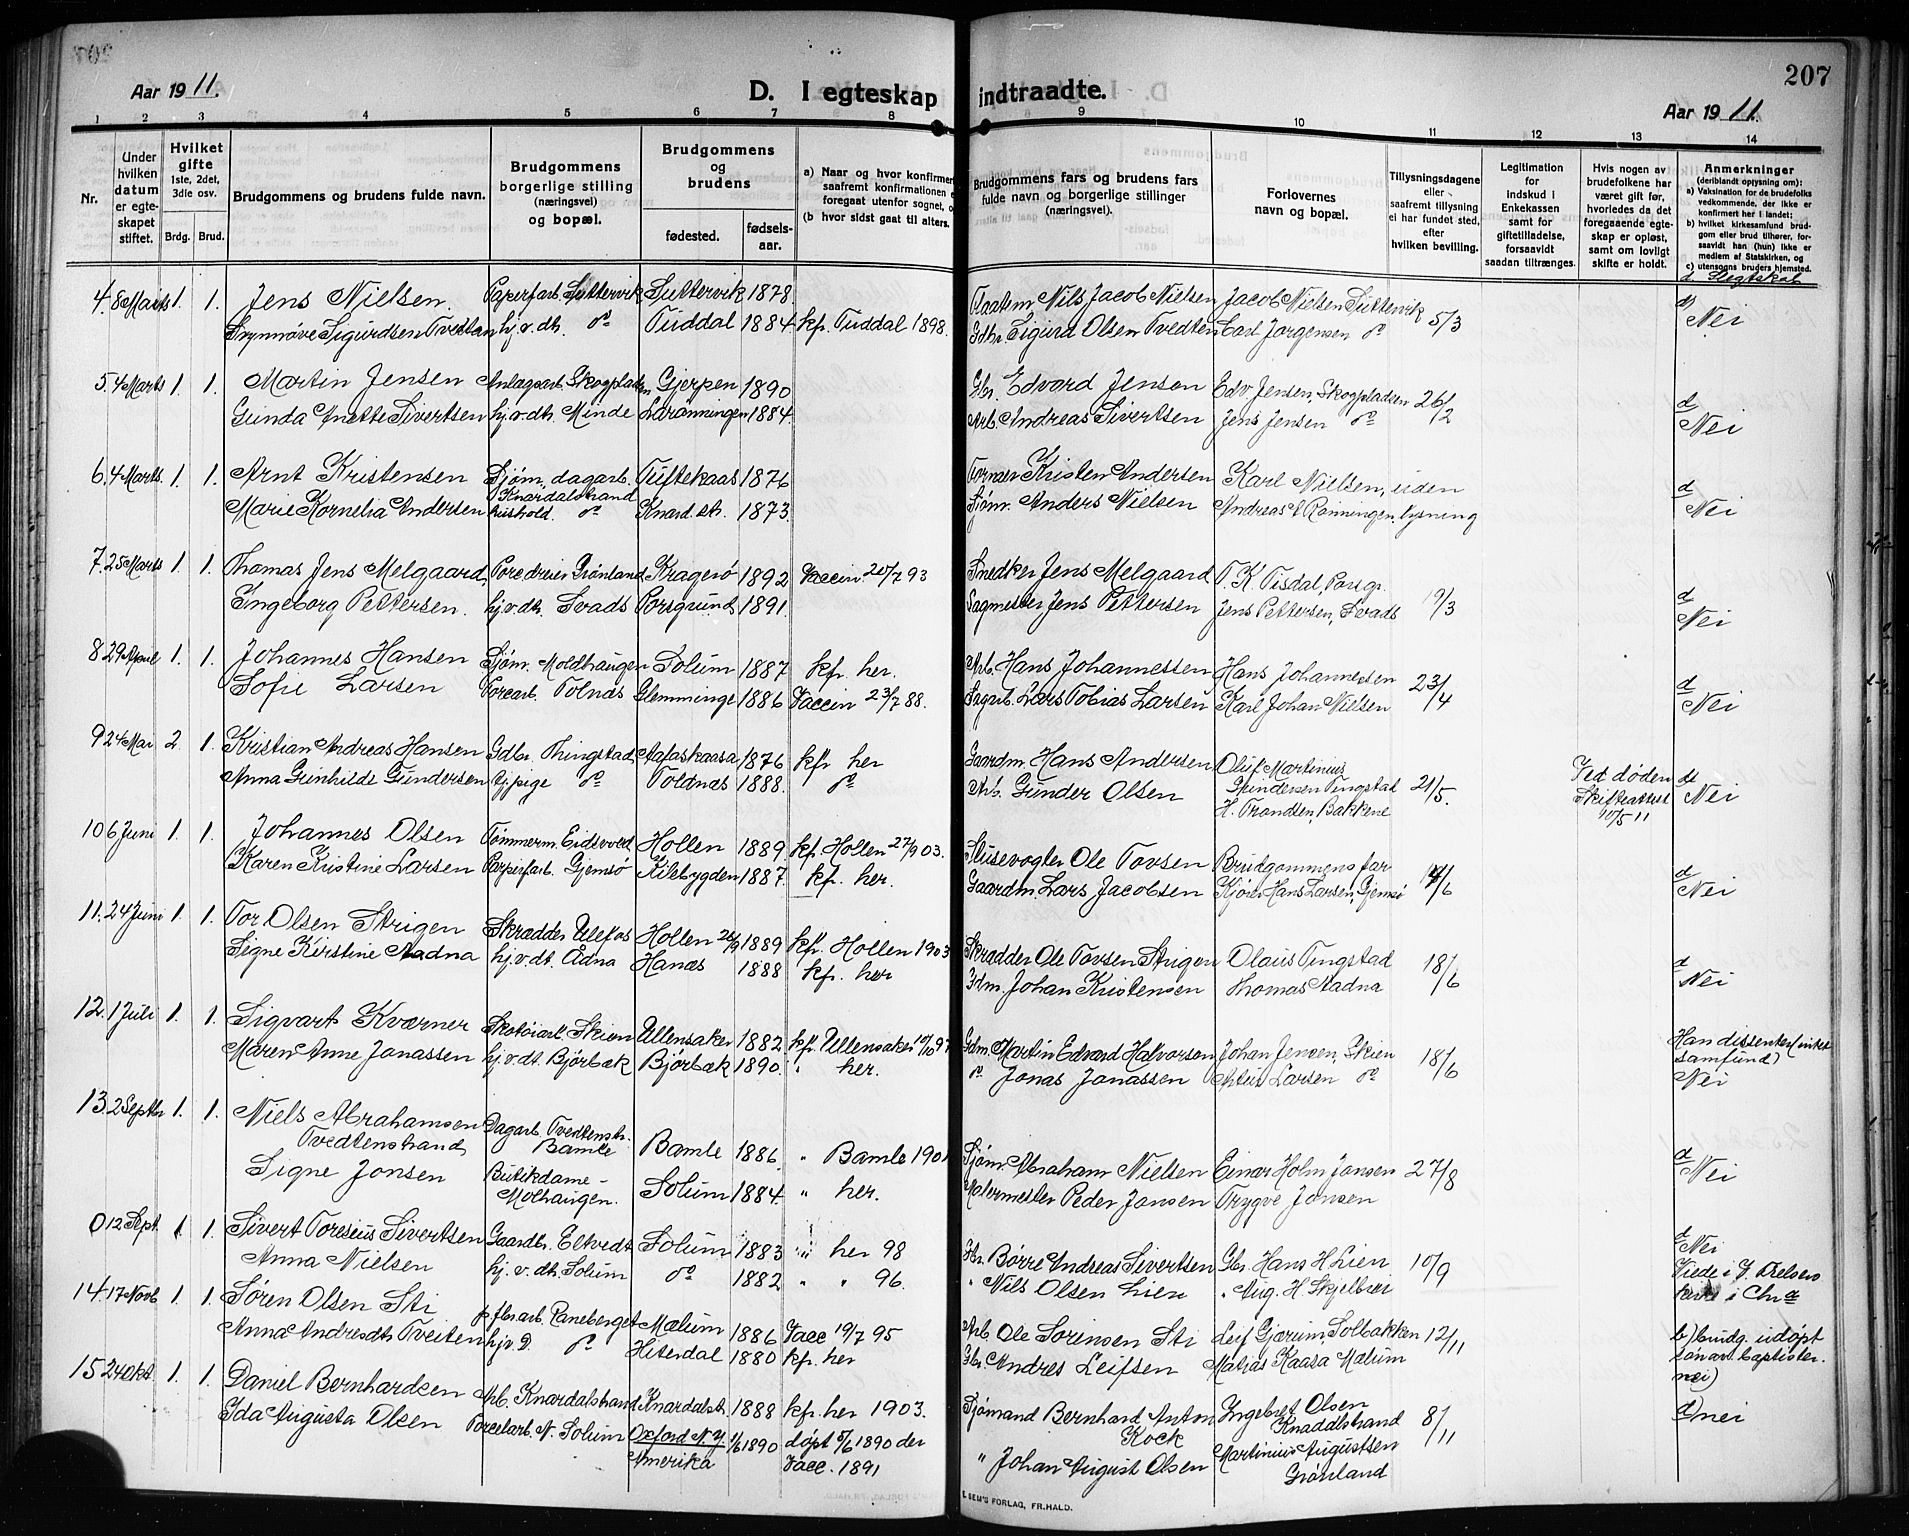 207
Aar 1911.
D. I egteskap indtraadte.
Aar 1911.
1 2 3 4 5 6 7 8 9 10 11 12 13 14
Nr.
Under hvilken datum er egteskapet stiftet.
Hvilket gifte 1ste, 2det, 3die osv.
Brdg. Brud.
Brudgommens og brudens fulde navn.
Brudgommens borgerlige stilling (næringsvei) og bopæl.
Brudgommens og brudens
fødested. fødselsaar.
a) Naar og hvor konfirmer
saafremt konfirmationen e
foregaat utenfor sognet, o
(b hvor sidst gaat til alters.
Brudgommens fars og brudens fars
fulde navn og borgerlige stillinger
(næringsvei).
Forlovernes
navn og bopæl.
Tillysningsdagene
eller
saafremt tillysning
ei har fundet sted,
efter
hvilken bevilling.
Legitimation
for
indskud i
Enkekassen
samt for
giftetilladelse,
forsaavidt
saadan tiltrænges.
Hvis nogen av
brudefolkene har
været gift før,
hvorledes da det
foregaaende egte-
skap er opløst,
samt om lovligt
skifte er holdt.
Anmerkninger
(deriblandt opjysning om):
a) Vaksination for de brudefolks
vedkommende, der ikke er
konfirmert her i landet;
b) hvilket kirkesamfund brud-
gom eller brud tilhører, for-
saavidt han (hun) ikke er
medlem af Statskirken, og
c) utensogns bruders hjemsted.
d. Slegtskab
4. 8 Marts 1. 1. Jens Nielsen. Papirfarb. Suttervik Suttervik 1878. Nils Jacob Nielsen Jacob Nielsen Suttervik 5/3 d) Nei
Synnøve Sigurdsen Tvedtan hj.v.dh. do Tuddal 1884 kf. Tuddal 1898. Gdbr Sigurd Olsen Tvedten Carl Jørgensen do
5. 4 Marts 1. 1. Martin Jensen Anlægsarb. Skogpladsen Gjerpen 1890 Gbr. Edvard Jensen Edv. Jensen, Skogpladsen 26/2 d Nei
Gunda Anette Sivertsen hj.v.dh. Minde 1884. Arb. Andreas Sivertsen Jens Jensen do
6. 4 Marts. 1. 1. Arnt Kristensen Sjøm. dagarb. Knardalstrand Tuftekaas 1876 Kristen Andersen Karl Nielsen, uden d Nei
Marie Kornelia Andersen hushold. do Knard.st. 1873. Sjøm. Anders Nielsen Andreas Rønningen. lysning
7. 25 Marts 1. 1. Thomas Jens Melgaard, Porc.dreier Grønland Kragerø 1892 Vaccin. 20/7 93 Snedker Jens Melgaard T. K. Tisdal, Porsgr. 19/3 d Nei
Ingeborg Pettersen. hj.v.dh. Svads Porsgrund 1891. Sagmester Jens Pettersen Jens Pettersen, Svads
8. 29 April 1. 1. Johannes Hansen Sjøm. Moldhaugen Solum 1887 kf. her. Arb. Hans Johannessen Hans Johannessen 23/4 d Nei
Sofie Larsen Porcarb. Tolnæs Glemminge 1886 Vaccin 23/7 88. Sagarb. Lars Tobias Larsen Karl Johan Nielsen
9. 24 Mai 2. 1. Kristian Andreas Hansen Gdbr. Thingstad Aafaskaasa 1876 kfr her Gaardm. Hans Andersen Oluf Martinius Gundersen Tingstad 21/5. Ved døden Skifteattest 10/5 11 d Nei
Anna Gunhilde Gundersen Tj.pige do Toldnæs 1888. do Arb. Gunder Olsen H. Trondsen, Bakkene
10. 6 Juni 1. 1. Johannes Olsen Tømmerm. Eidsvold Hollen 1889 kf. Hollen 27/9 03. Slusevogter Ole Tovsen Brudgommens far 4/6 d Nei
Karen Kristine Larsen Papirfarb. Gjemsø Kilebygden 1887. kf. her. Gaardm. Lars Jacobsen Kjører Hans Larsen, Gjemsø
11. 24 Juni 1. 1. Tor Olsen Strigen Skrædder Ulefos Hollen 26/9 1889 kfr. Hollen 1903 Skrædder Ole Torsen Strigen Olaus Tingstad 18/6 d Nei
Signe Kirstine Aadna hj.v.dt. Ådna Hanæs 1888 kfr. her Gdm. Johan Kristensen Thomas Aadna
12. 1 Juli 1. 1. Sigvart Kværner Skotøiarb. Skien Ullensaker 1882 kfr. Ullensaker 17/10 97 Gdm. Martin Edvard Halvorsen Johan Jensen, Skien 18/6 Han dissenter (intet samfund)
Maren Anne Jonassen hj.v.dt. Bjørbæk Bjørbæk 1890. " her. do Jonas Jonassen Larsen do Nei
13. 2 Septbr 1. 1. Niels Abrahamsen Tvedtenstrand Dagarb. Tvedtenstr. Bamle Bamle 1886. " Bamle 1901 Sjøm. Abraham Nielsen Einar Holm Jansen 27/8 d Nei
Signe Jonsen Butikdame - Molhaugen. Solum 1884. " her. Malermester Peder Jansen Trygve Jonsen
0 12 Sept. 1 1. Sivert Toresius Sivertsen Gaardbr. Eltvedt Solum 1883 " her 98 Gbr. Børre Andreas Sivertsen Gbr. Hans H Lien 10/9 d Nei
Anna Nielsen hj.v.dh. Solum do 1882 " " 96. " Nils Olsen Lien " Aug. H. Skjelbrei Viede i J. kirke i Chra
14. 17 Novb 1. 1. Søren Olsen Sti Raneberget Mælum 1886 Vacc 19/7 95 Arb. Ole Sørensen Sti Leif Gjærum, Solbakken 12/11 b) brudg. udøpt søn av baptister.
Anna Andresdtr Tveiten hjv.D. do Hiterdal 1880 kf. her Gbr. Andres Leifsen Matias Kaasa Mælum nei)
15 24 Okt. 1. 1. Daniel Bernhardsen Arb. Knardalstrand Knardalstr. 1888 kf. her 1903. Sjømand Bernhard Anton Kock Ingebret Olsen Knaddlstrand 8/11 d) nei
Ida Augusta Olsen Porcelarb. N. Solum Oxford N.Y. Amerika 1/6 1890 døpt 5/6 1890 der Vacc. 1891 " Johan August Olsen Martinius Augustsen Grønland
E. SEM'S FORLAG, FR.HALD.